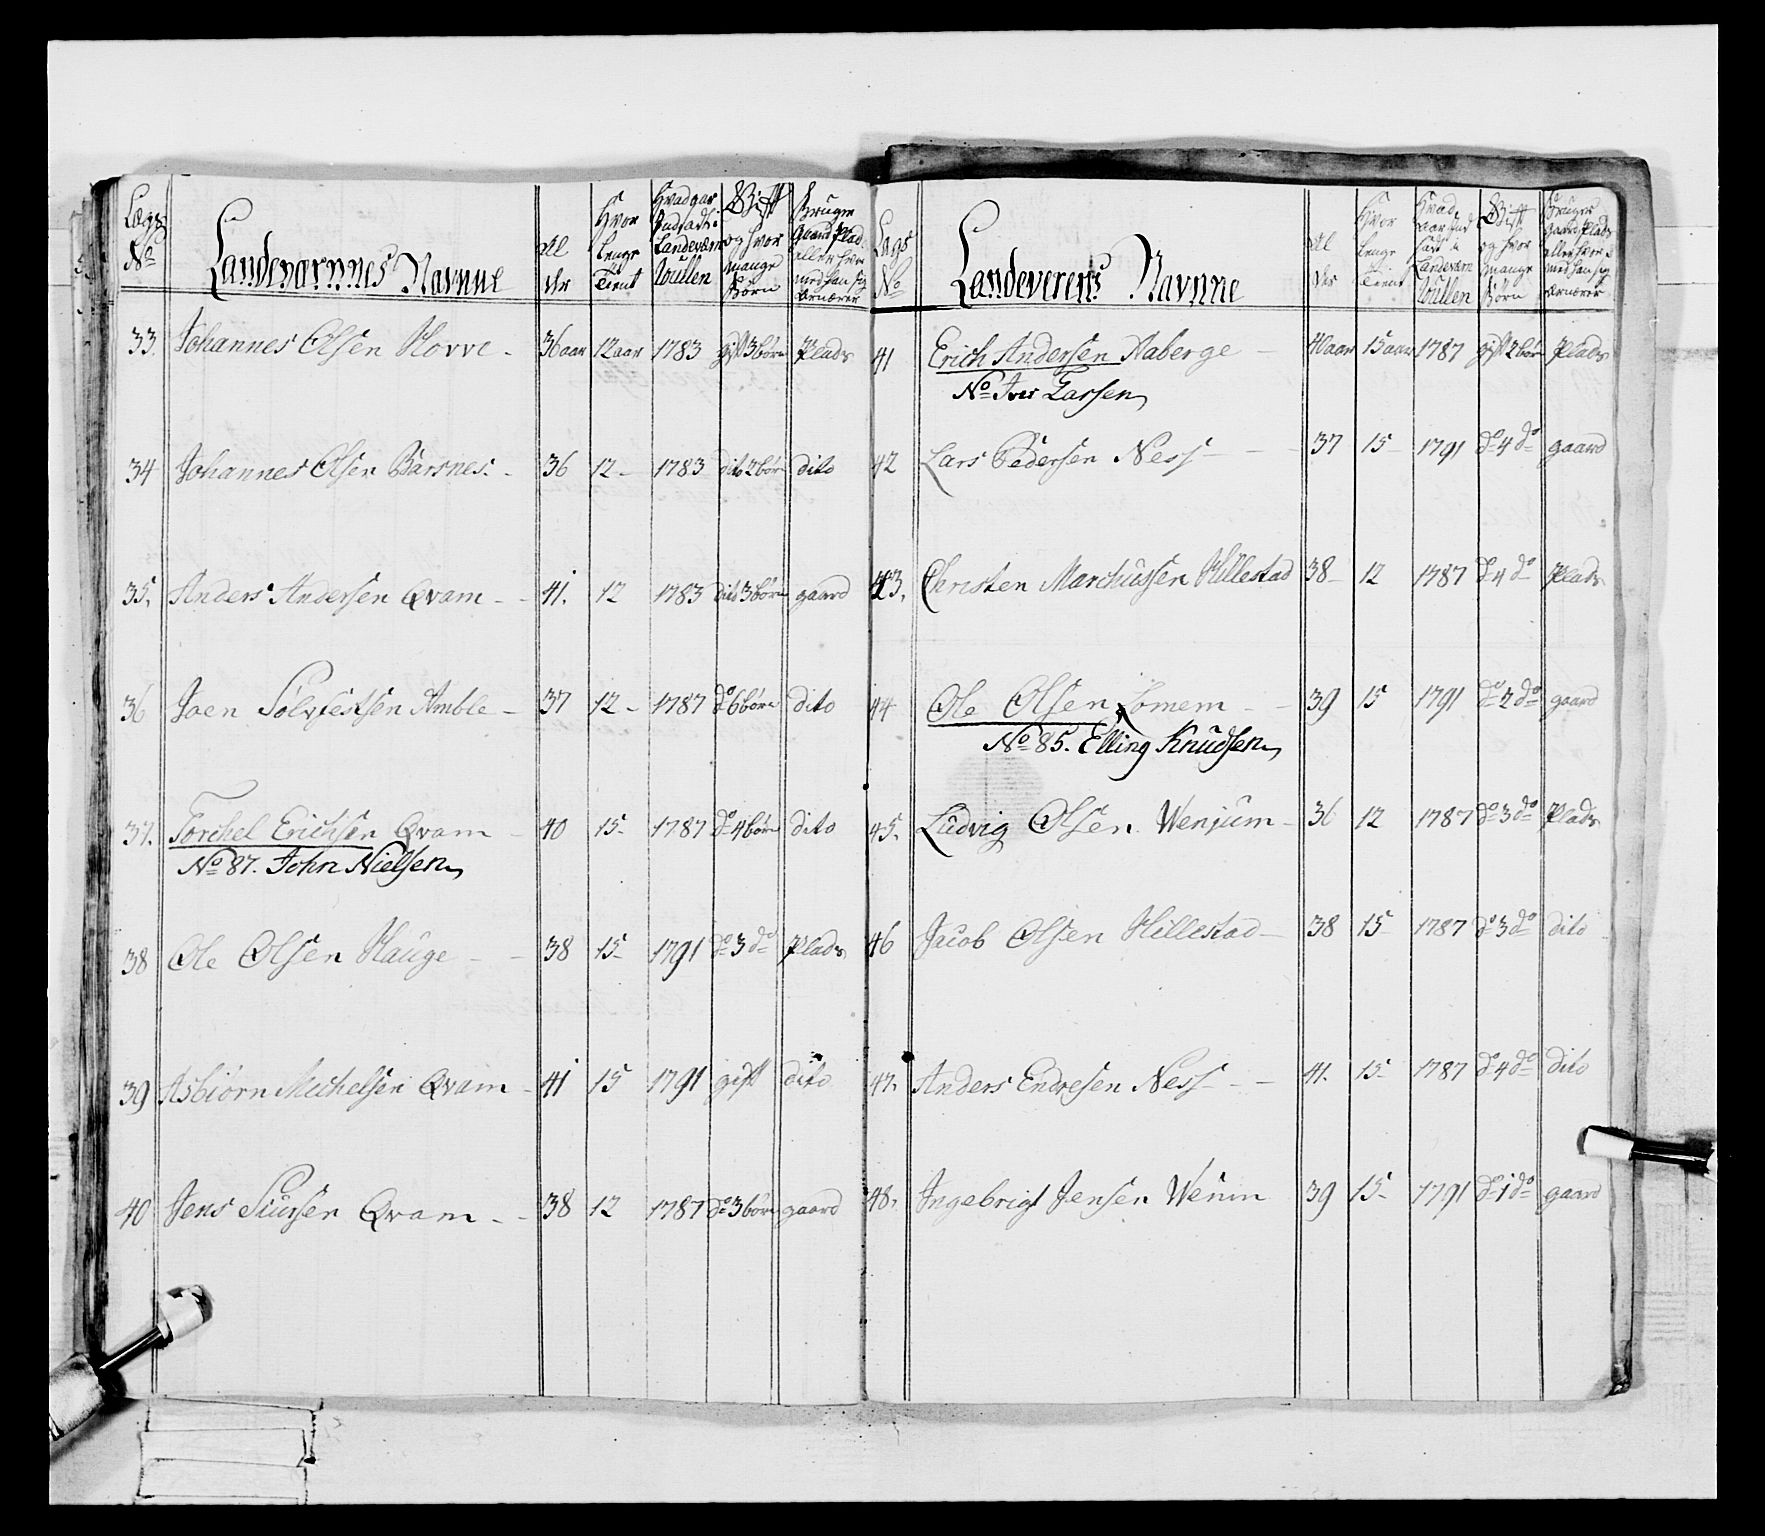 Lægs No | Landeværnnes Navnne | Al der | Hvor lenge Tient | Hvad aar Indsadt i Landeværn Rullen | Gift og hvor mange Børn | Bruger Gaard Plads eller hvor med han sig Ernærer
33. Johannes Olsen Hovve - | 36 aar | 12 aar | 1783 | gift 3 børn | Plads
34 Johannes Olsen Barsnes. - | 36 | 12 - | 1783 | dito 2 børn | dito
35. Anders Andersen Qvam - - | 41. | 12 | 1783 | dito 3 børn | gaard
36 Joen Solvfestsen Amble - | 37 | 12 - | 1787 | do 6 børn | dito
37. Torchel Erichsen Qvam - | 40 | 15 - | 1787 | do 4 børn | dito
No 87. John Nielsen,
38 Ole Olsen Hauge - - | 38 | 15 - | 1791 | do 3 do | Plads
39 Asbiørn Michelsen Qvam - | 41 | 15 | 1791 | gift | dito
40 Jens Siursen Qvam - - | 38 | 12 | 1787 | do 3 børn | gaard
Lægs No | Landeverens Navnne | Al der | Hvor lenge Tient | Hvad aar Ind sadt i Landeværn Rullen | Gift og hvor mange Børn | Bruger Gaard Plads eller hvor med han sig Ernærer
41 Erich Andersen Naberge - | 40 aar | 15 aar | 1787 | gift 2 børn | Plads
No Iver Larsen,
42 Lars Pedersen Ness - - - | 37 | 15 - | 1791 | do 4 do | gaard
43. Christen Marchussen Hillestad | 38 - | 12 | 1787 | do 4 do | Plads
44 Ole Olsen Lomem - - | 39 | 15 | 1791 | do 2 do | gaard
No 85. Elling Knudsen,
45. Ludvig Olsen Wenjum - | 36 | 12 | 1787 | do 3 do | Plads
46 Jacob Olsen Hillestad - | 38 | 15 - | 1787 | do 3 do | dito
47. Anders Endresen Ness - - | 41. | 15 - | 1787 | do 4 do | dito
48. Ingebrigt Jensen Wenim | 39 | 15 - | 1791 | do 1 do | gaard